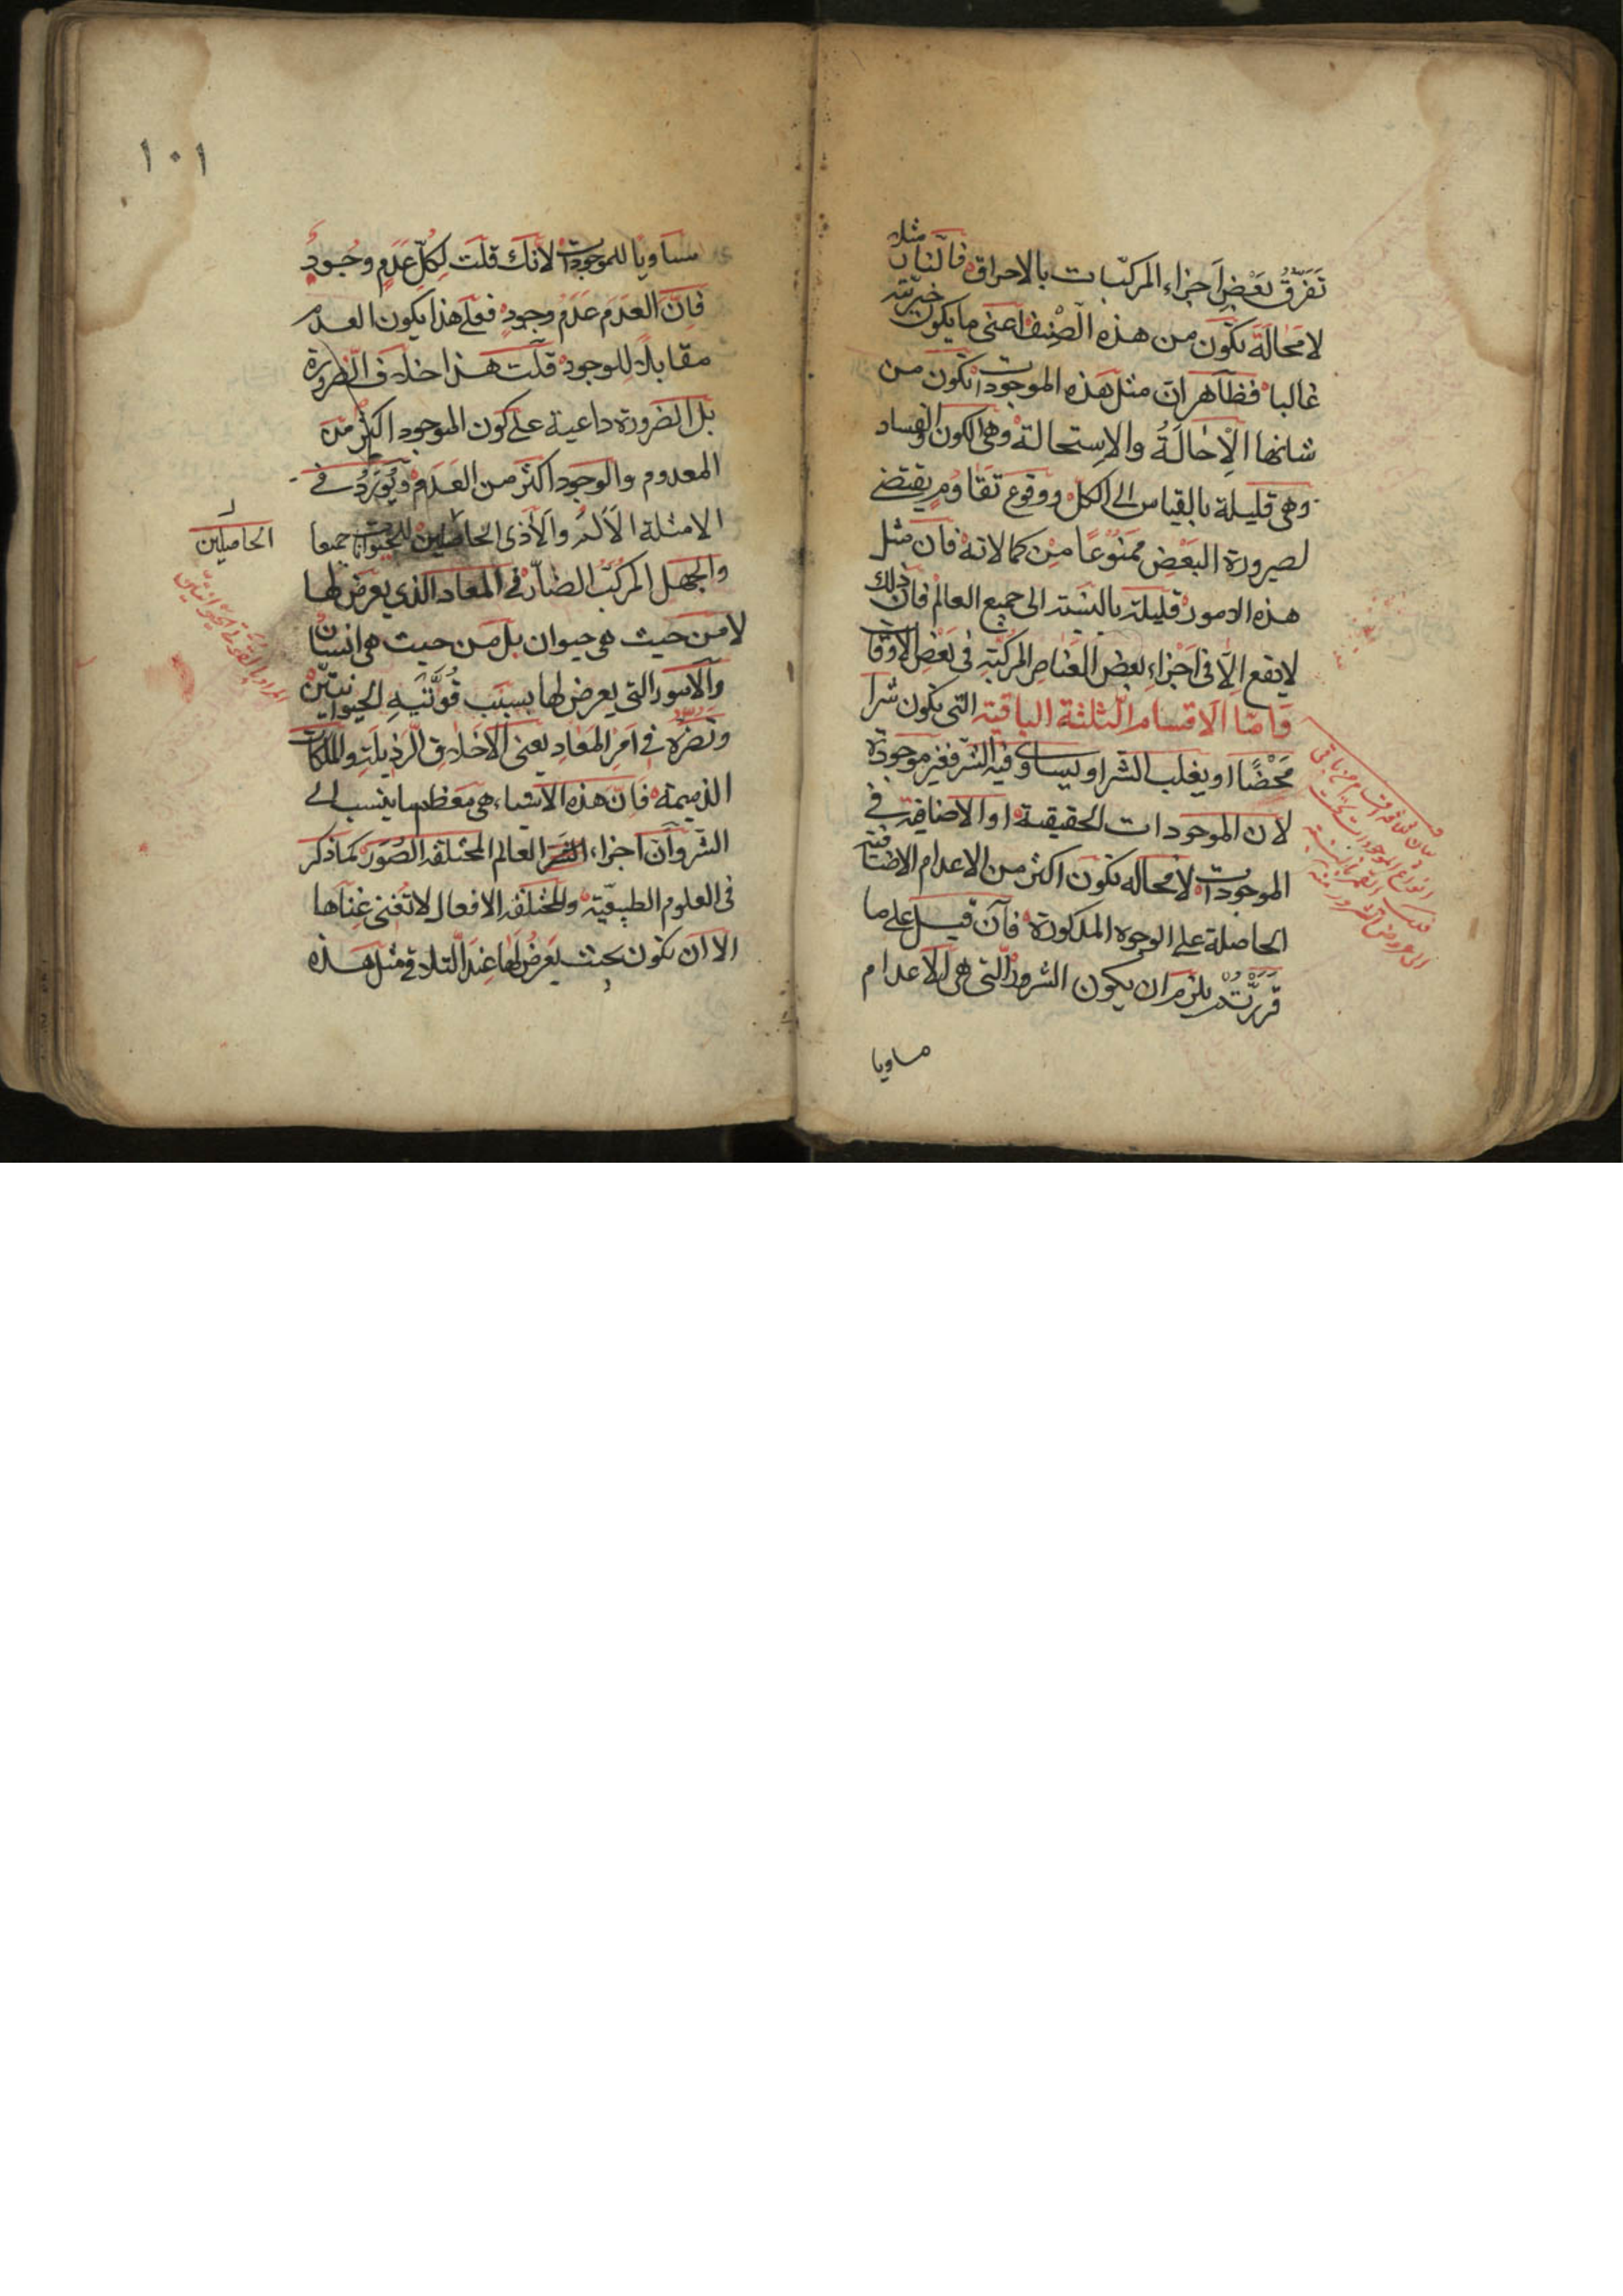 تَفَرُّقُ بَعْضِ اَجزاءِ المركبّات بالاحراق فالنّار مثلا
لا مَحَالَةَ تكون من هذه الصِّنِف اعنى ما يكون خيريّته
غالبا فظاهر ان مثل هذه الموجودات تكون من
شانها الْاِحَالَةُ والاِستحالة وهى الكون والفساد
وهى قليلة بالقياس الى الكل ووقوع تقاوُمٍ يقتضى
لصيرورة البَعْضِ ممنوُعًا مِنْ كمالاته فان مثل
هذه الامور قليلة بالنسبة الى جميع العالم فان ذلك
لا يقع اِلّا فى اَجْزاءِ بعض العنَاصِرِ المركبّةِ فى بَعْضِ الاَوْقات
وَامّا الاقسام الثلثة الباقية التّى يكون شرا
مَحْضًا او يغلب الشر او يساوى فيه الشرّ فغير موجودة
لان الموجودات الحقيقية او الاضافية فى
الموجودات لا محاله تكون اكثر من الاعدام الاضافية
الحاصلة على الوجوه المذكورة فان قيل على ما
قَرَرّتُمْ يلزم ان يكون الشرور الّتى هى الاعدام
مساويا
١٠١
مساويًا للموجودات لانّك قلت لِكُلِّ عَدَمٍ وجُودٌ
فانَّ العَدَمَ عَدَمُ وجودٍ فعلى هذا يكون العدم
مقابلاً للوجود قلت هذا خلاف الضّرورة
بل الضرورة داعية على كون الموجود اكثر من
المعدوم والوجود اكثر من العَدَم ويُورَدُ فى
الامثلة الاَلَمُ والاَذى الحاصلين للحيوانات جميعا
الحاصلين
والجهل المركّبُ الضارُّ فى المعاد الذى يعرض لها
لا من حيث هى حيوان بل من حيث هى انسان
والاُمور التى يعرض لها بسبَبِ قُوَّتَيهِ الحيوانيتّين
وتضرُّه فى اَمرِ المعَادِ يعنى الاخلاق الرّذيلَةِ والملكات
الذميمة فانّ هذه الاشياء هى مَعظم ما ينسب الى
الشر وانّ اجزاء العالم المختلفه الصُوَر كما ذكر
فى العلوم الطبيعّية والمختلفه الافعال لا تُغنى غِنآها
الا ان تكون بحيث يَعرضُ لهَا عِندَ التلاقى مثل هذه